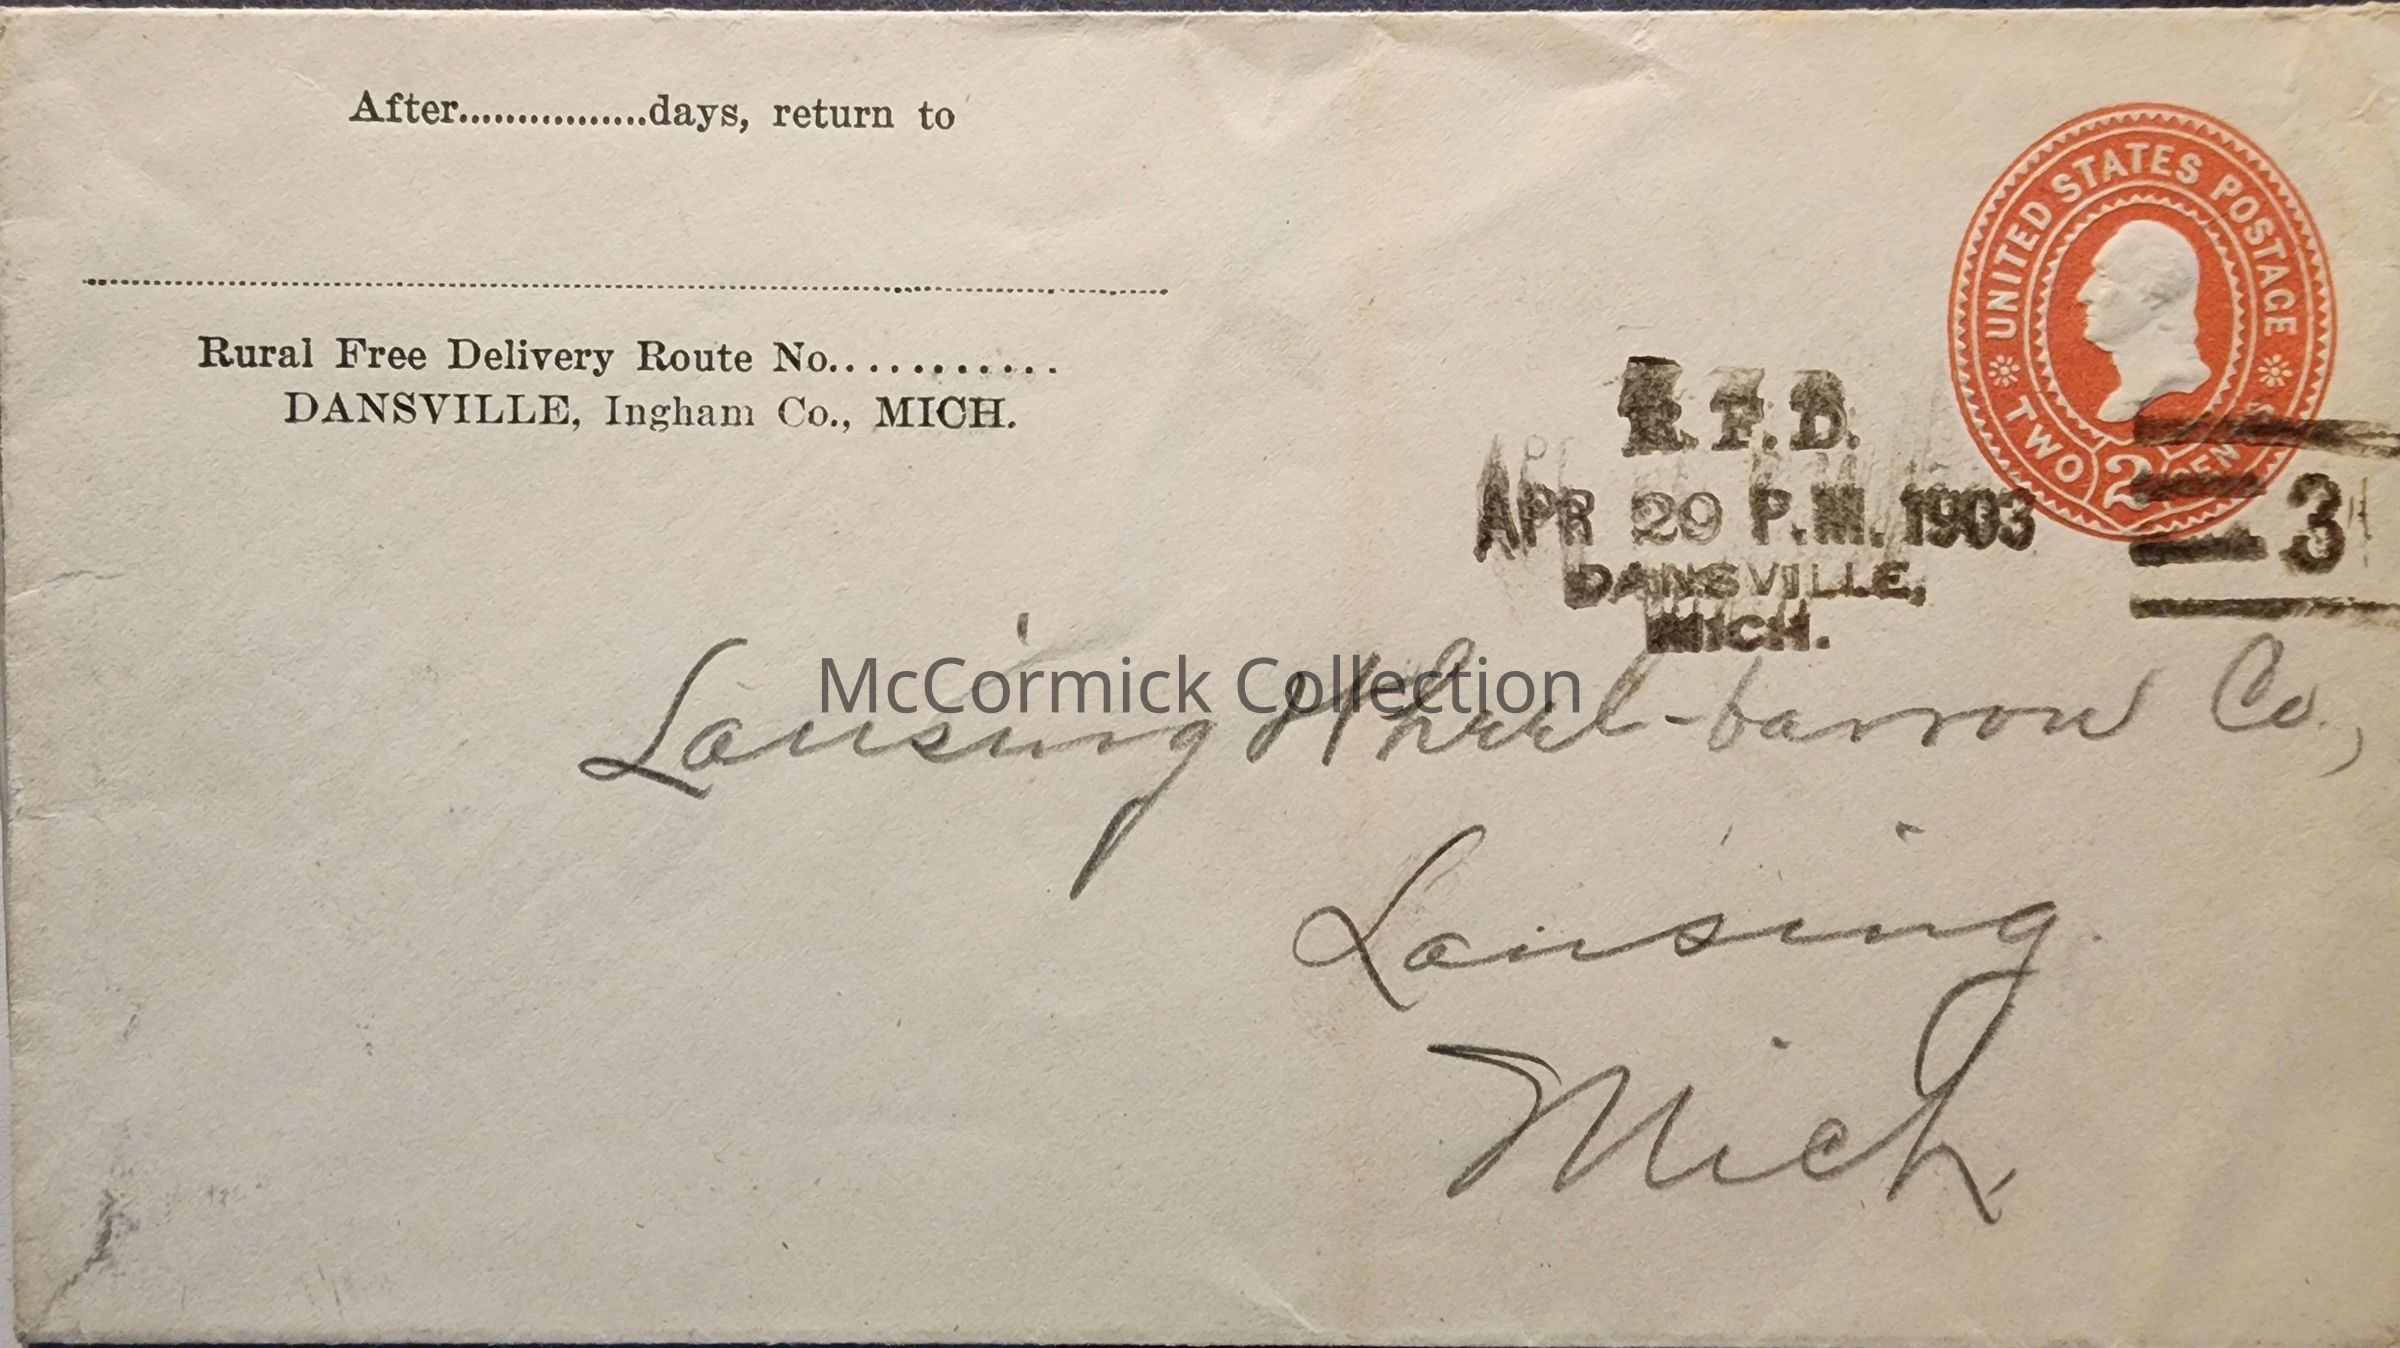 After................days, return to
Rural Free Delivery Route No...........
DANSVILLE, Ingham Co., MICH.
UNITED STATES POSTAGE
TWO 2 CENTS
R.F.D.
APR 29 P.M. 1903
DANSVILLE,
MICH.
3
McCormick Collection
Lansing Wheel-barrow Co.,
Lansing
Mich.